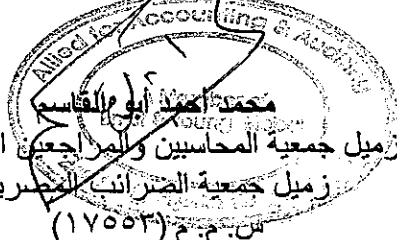 Allied for Accounting & Auditing
محمد أحمد أبو القاسم
زميل جمعية المحاسبين والمراجعين
زميل جمعية الضرائب المصرية
س. م. م (١٧٥٥٣)